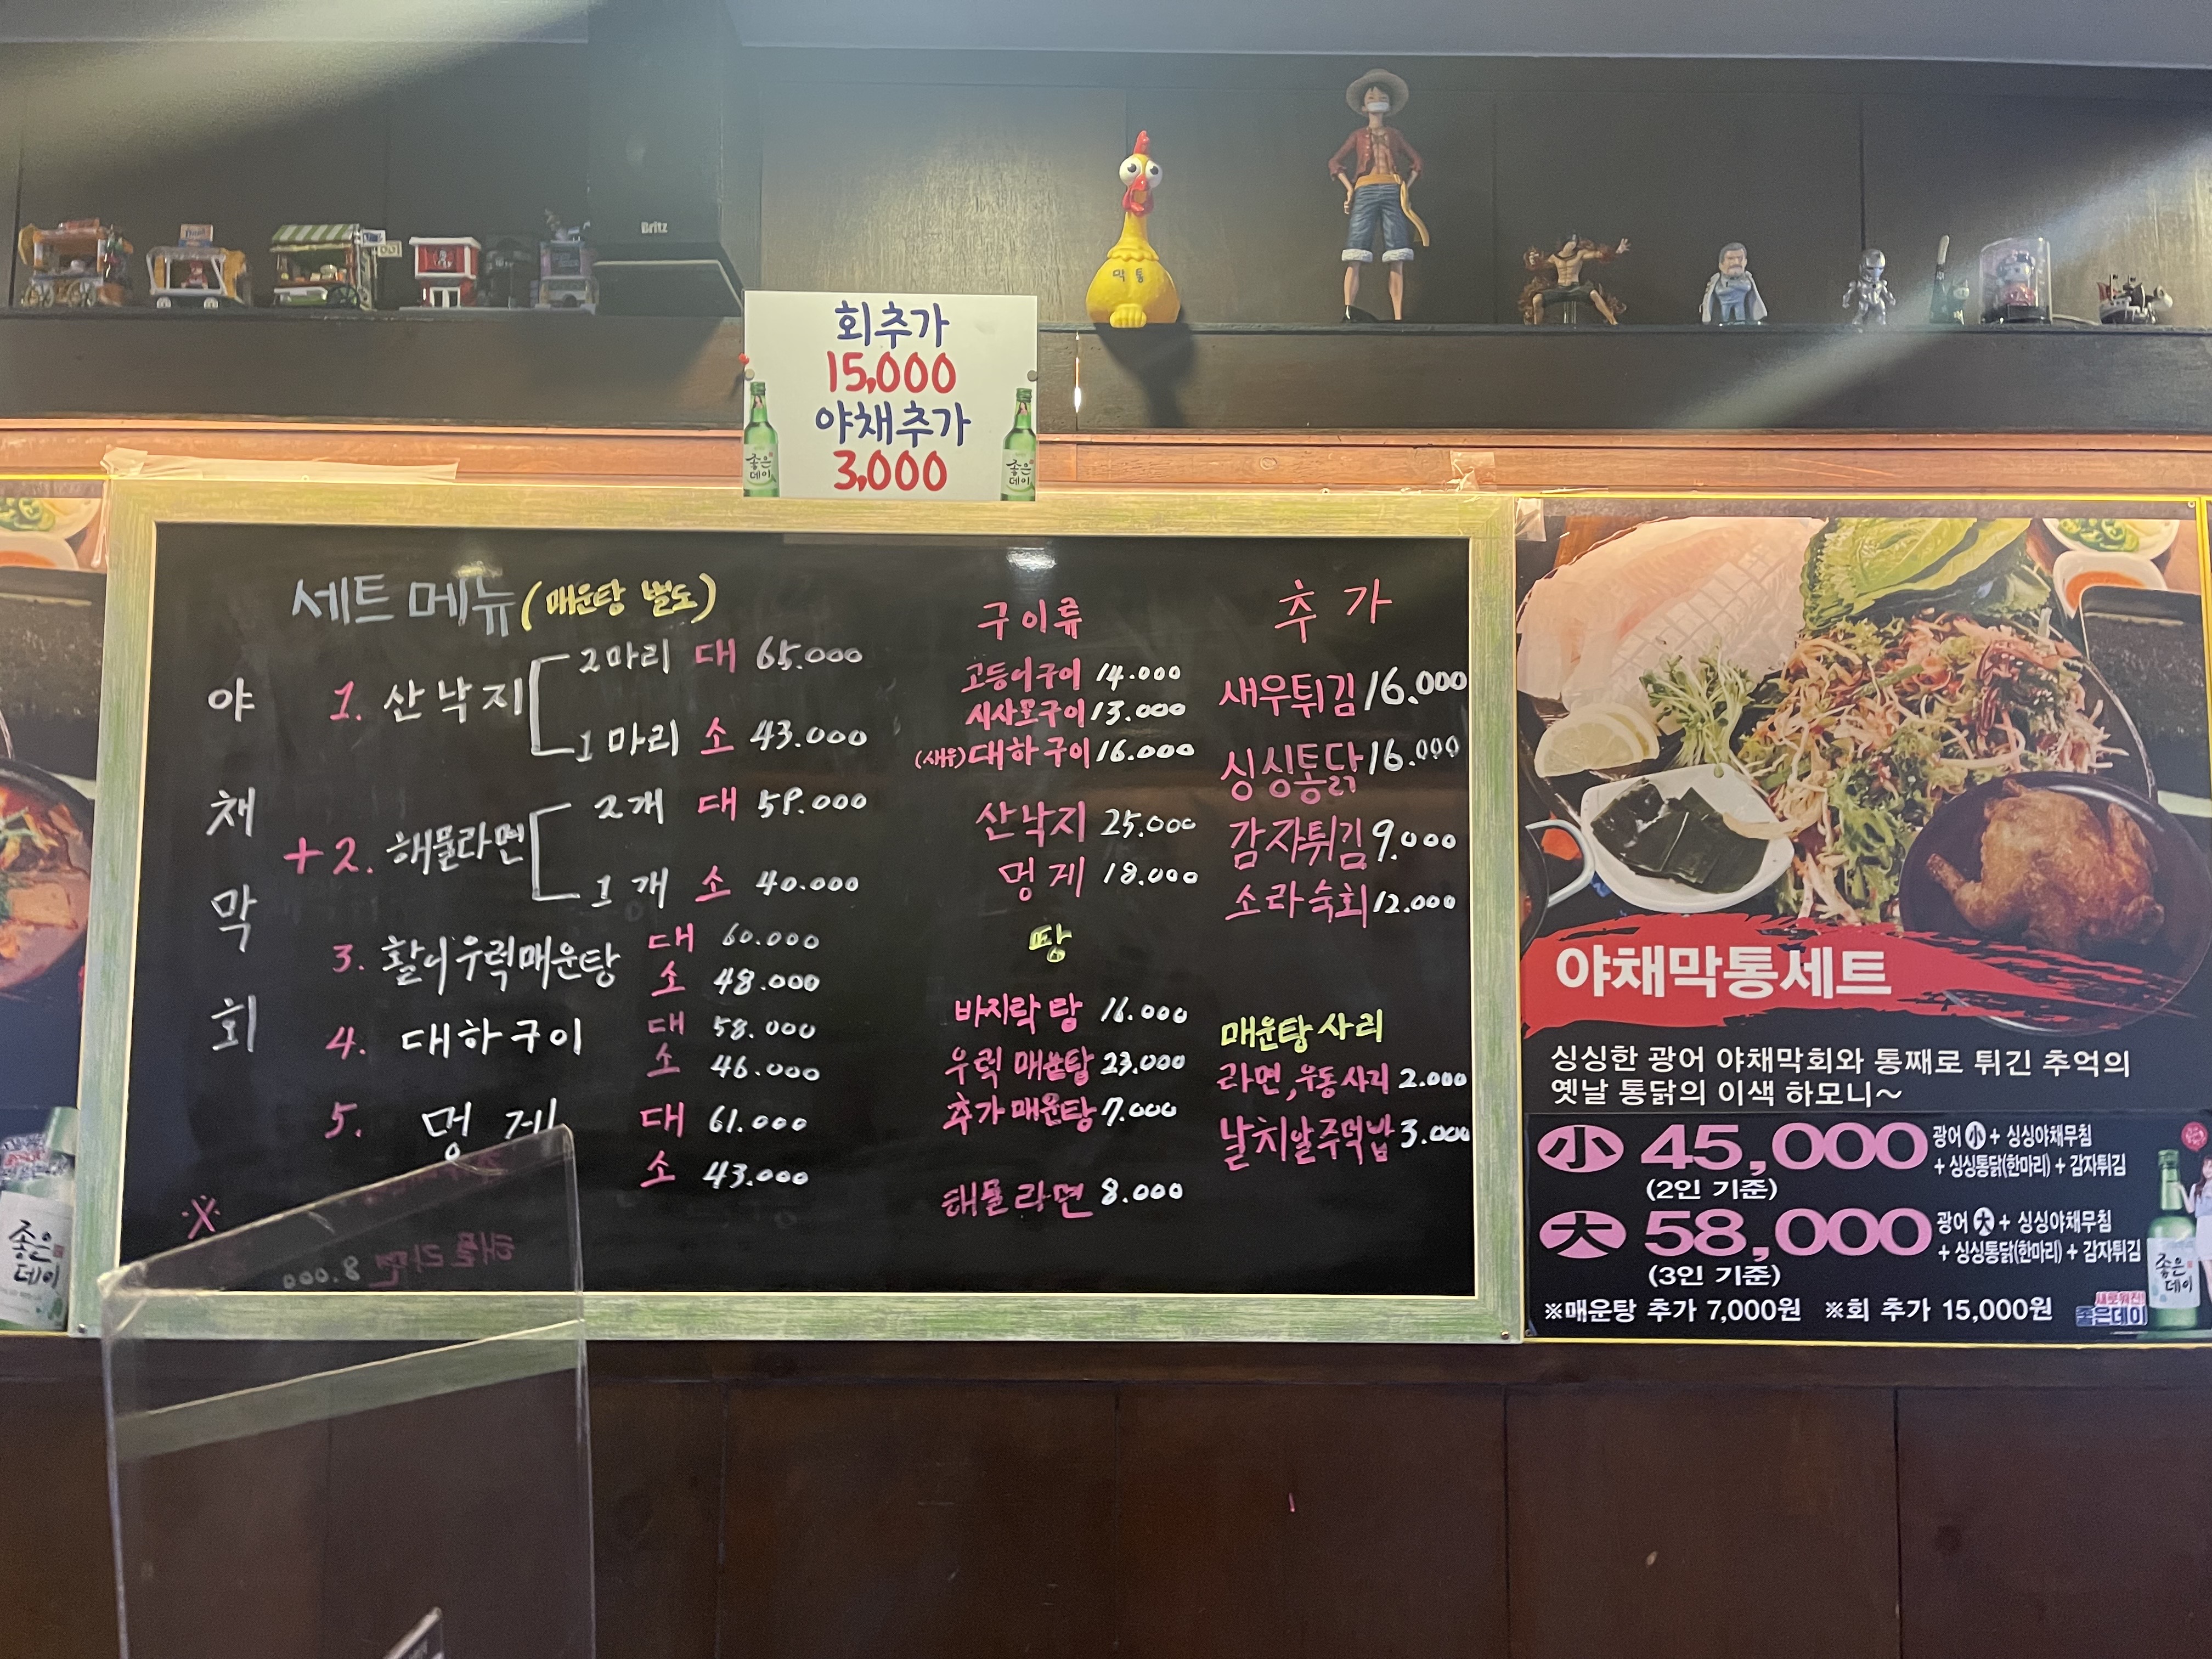 Britz
막통
회추가
15,000
야채추가
3,000
좋은
데이
좋은
데이
세트 메뉴 (매운탕 별도)
야채막회
+
1. 산낙지
2마리 대 65.000
1마리 소 43.000
2. 해물라면
2개 대 59.000
1개 소 40.000
3. 활어우럭매운탕
대 60.000
소 48.000
4. 대하구이
대 58.000
소 46.000
5. 멍게
대 61.000
소 43.000
※
구이류
고등어구이 14.000
시사모구이 13.000
(새우)대하구이 16.000
산낙지 25.000
멍게 18.000
탕
바지락탕 16.000
우럭 매운탕 23.000
추가 매운탕 7.000
해물라면 8.000
추가
새우튀김 16.000
싱싱통닭 16.000
감자튀김 9.000
소라숙회 12.000
매운탕사리
라면,우동사리 2.000
날치알주먹밥 3.000
야채막통세트
싱싱한 광어 야채막회와 통째로 튀긴 추억의
옛날 통닭의 이색 하모니~
小 45,000 광어 小 + 싱싱야채무침
+ 싱싱통닭(한마리) + 감자튀김
(2인 기준)
大 58,000 광어 大 + 싱싱야채무침
+ 싱싱통닭(한마리) + 감자튀김
(3인 기준)
※매운탕 추가 7,000원 ※회 추가 15,000원
좋은데이
좋은
데이
좋은
데이